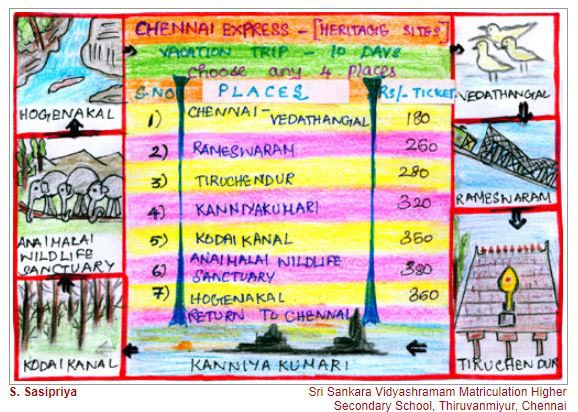 CHENNAI EXPRESS - [HERITAGE SITES]
VACATION TRIP - 10 DAYS
choose any 4 places
S.NO PLACES RS/- TICKET
1) CHENNAI - VEDATHANGAL 180
2) RAMESWARAM 250
3) TIRUCHENDUR 280
4) KANNIYAKUMARI 320
5) KODAIKANAL 350
6) ANAIMALAI WILDLIFE SANCTUARY 380
7) HOGENAKAL 360
RETURN TO CHENNAI
VEDATHANGAL
RAMESWARAM
TIRUCHENDUR
KANNIYA KUMARI
KODAIKANAL
ANAIMALAI
WILDLIFE
SANCTUARY
HOGENAKAL
S. Sasipriya
Sri Sankara Vidyashramam Matriculation Higher
Secondary School, Thiruvanmiyur, Chennai